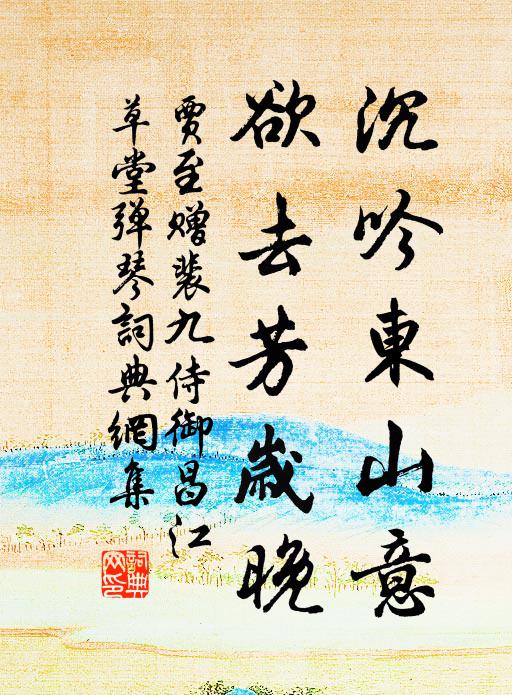 沉吟東山意
欲去芳歲晚
贾至赠裴九侍御昌江
草堂弹琴詞典網集
詞典
网印